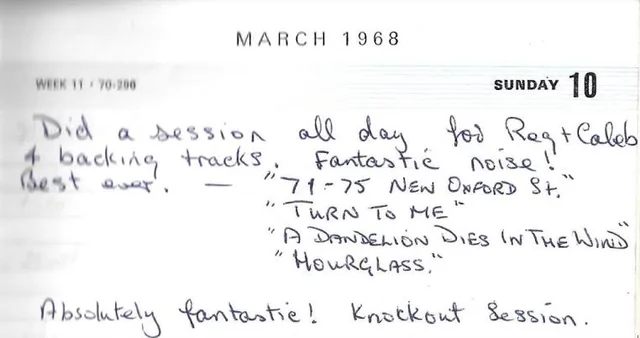 MARCH 1968
WEEK 11 • 70-296
SUNDAY 10
Did a session all day for Reg + Caleb
4 backing tracks. Fantastic noise!
Best ever. — "71-75 NEW OXFORD St."
"TURN TO ME"
"A DANDELION DIES IN THE WIND"
"HOURGLASS."
Absolutely fantastic! Knockout Session.